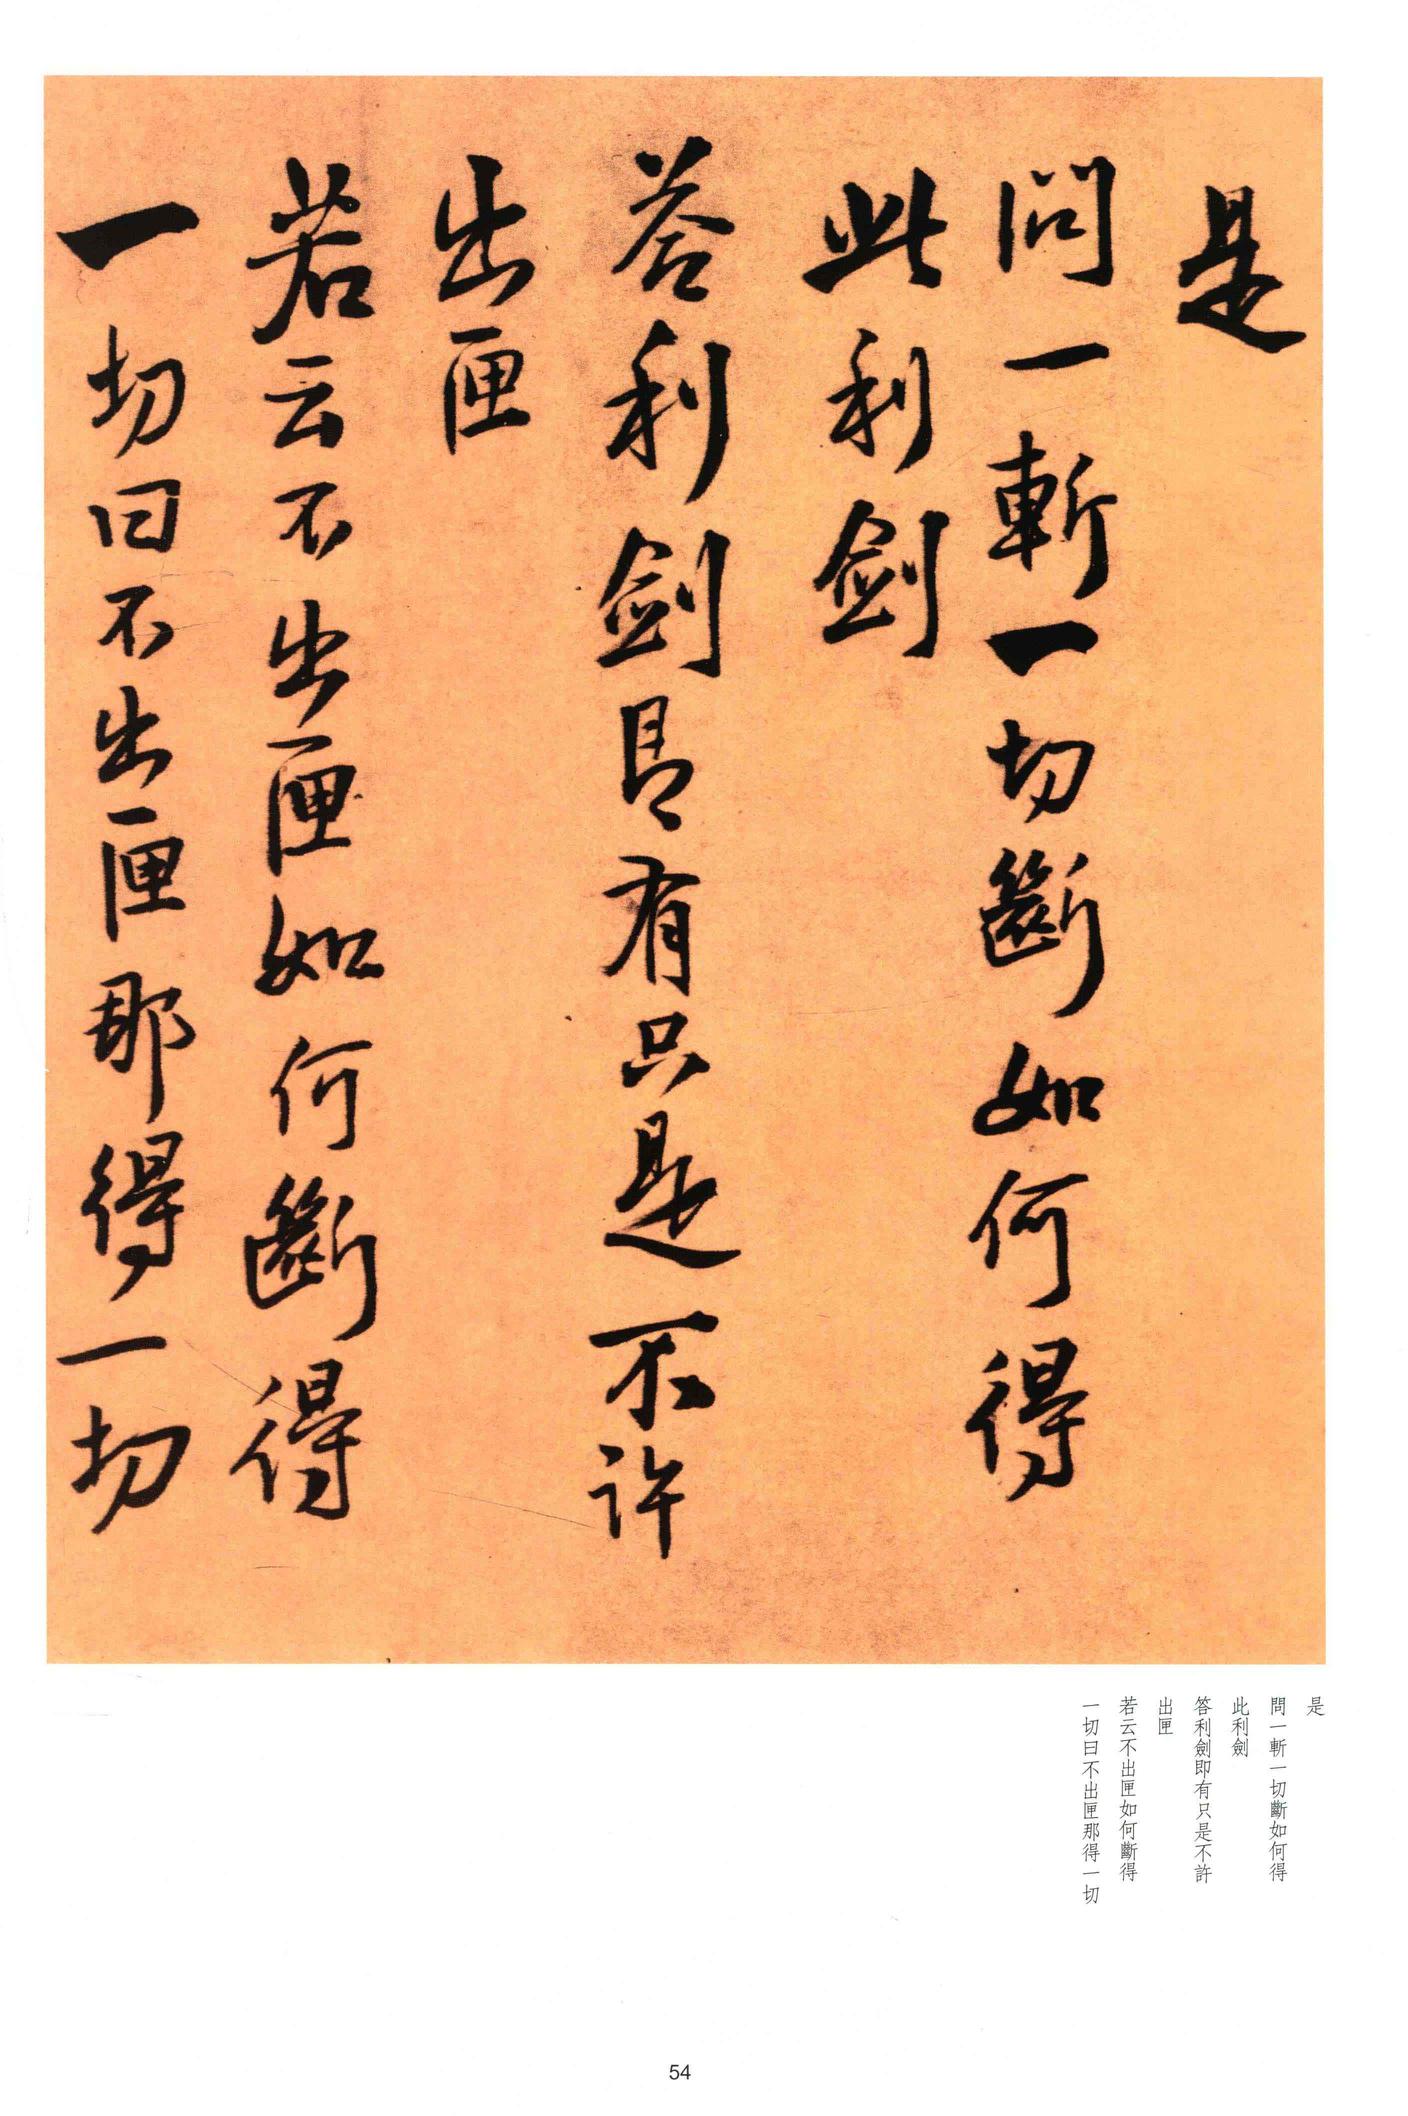 是
問一斬一切斷如何得
此利劍
答利劍即有只是不許
出匣
若云不出匣如何斷得
一切曰不出匣那得一切
是
問一斬一切斷如何得
此利劍
答利劍即有只是不許
出匣
若云不出匣如何斷得
一切曰不出匣那得一切
54